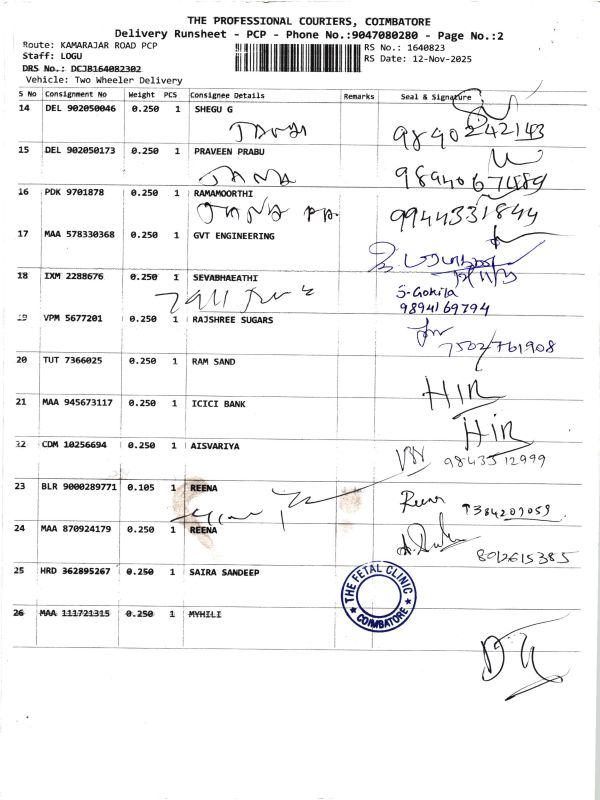 THE PROFESSIONAL COURIERS, COIMBATORE
Delivery Runsheet - PCP - Phone No.:9047080280 - Page No.:2
Route: KAMARAJAR ROAD PCP
Staff: LOGU
DRS No.: DCJB164082302
Vehicle: Two Wheeler Delivery
RS No.: 1640823
RS Date: 12-Nov-2025
S No Consignment No Weight PCS Consignee Details Remarks Seal & Signature
14 DEL 902050046 0.250 1 SHEGU G
9890242143
15 DEL 902050173 0.250 1 PRAVEEN PRABU
9894067489
16 PDK 9701878 0.250 1 RAMAMOORTHI
9944331844
17 MAA 578330368 0.250 1 GVT ENGINEERING
18 IXM 2288676 0.250 1 SEVABHAEATHI
S-Gokila
9894169794
19 VPM 5677201 0.250 1 RAJSHREE SUGARS
7502761908
20 TUT 7366025 0.250 1 RAM SAND
HIR
21 MAA 945673117 0.250 1 ICICI BANK
HIR
22 CDM 10256694 0.250 1 AISVARIYA
9843512999
23 BLR 9000289771 0.105 1 REENA
Reena 7384207059
24 MAA 870924179 0.250 1 REENA
8012615385
25 HRD 362895267 0.250 1 SAIRA SANDEEP
THE FETAL CLINIC
COIMBATORE
26 MAA 111721315 0.250 1 MYHILI